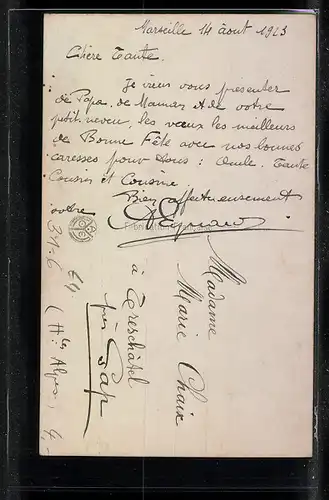 Marseille 14 août 1923
Chère Tante.
Je viens vous présenter
de Papa, de Maman et de votre
petit neveu, les vœux les meilleurs
de Bonne Fête avec nos bonnes
caresses pour tous : Oncle, Tante
Cousin et Cousine
Bien affectueusement
Madame
Marie Chaix
à
près Gap
(Htes Alpes)